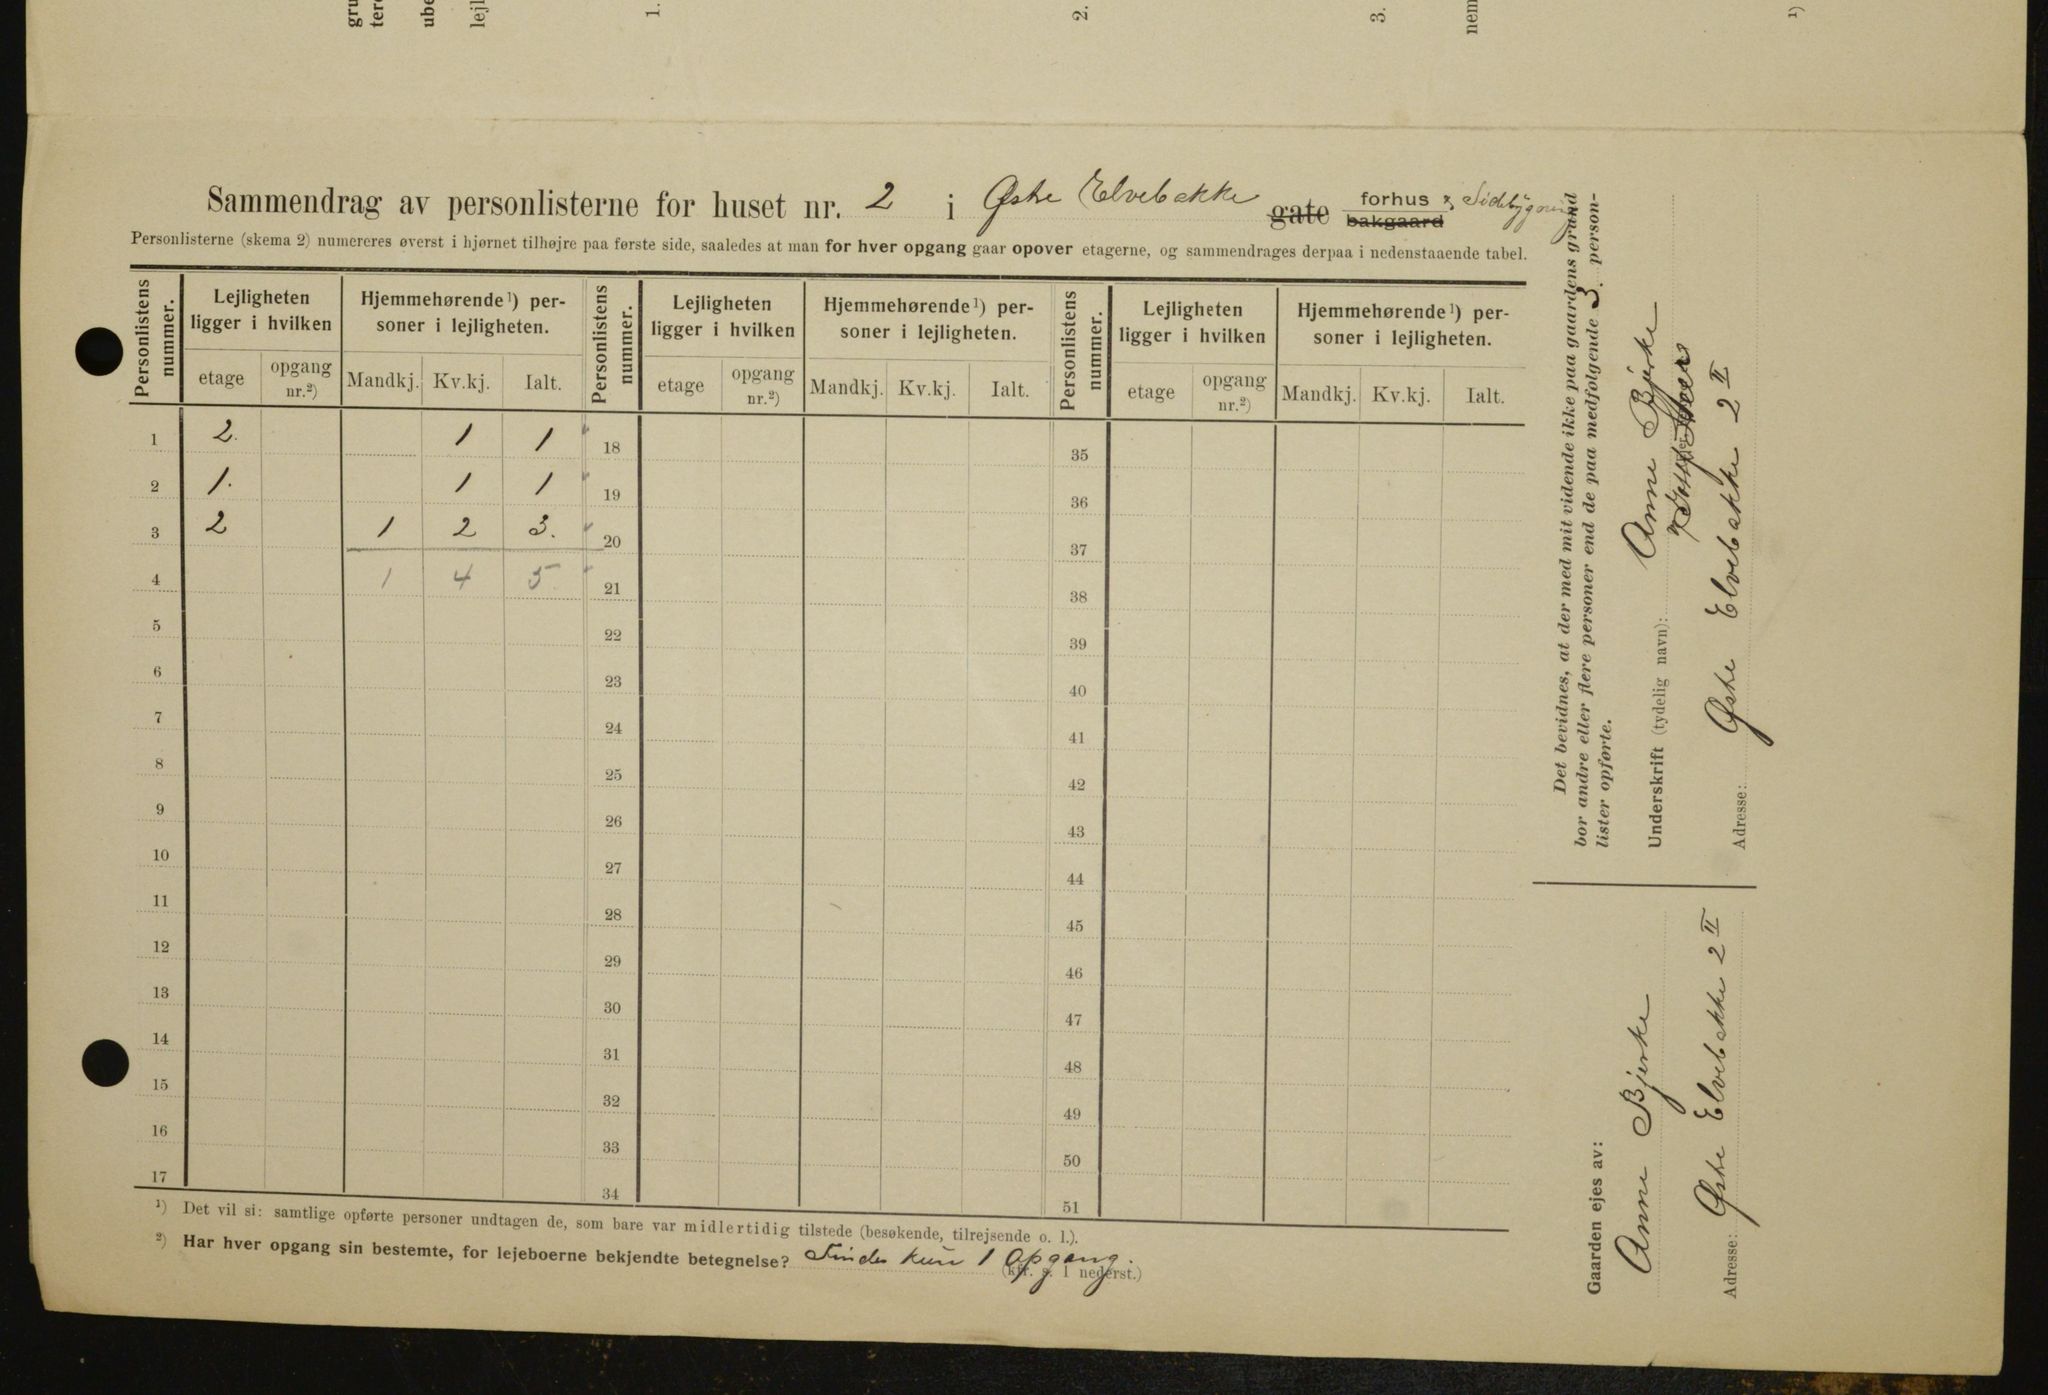 gru
tere
ube
lejl
1.
2.
3.
nem
1)
Sammendrag av personlisterne for huset nr. 2 i Østre Elvebakke gate forhus & Sidebygning
bakgaard
Personlisterne (skema 2) numereres øverst i hjørnet tilhøjre paa første side, saaledes at man for hver opgang gaar opover etagerne, og sammendrages derpaa i nedenstaaende tabel.
Personlistens nummer. Lejligheten ligger i hvilken Hjemmehørende ¹) personer i lejligheten. Personlistens nummer. Lejligheten ligger i hvilken Hjemmehørende ¹) personer i lejligheten. Personlistens nummer. Lejligheten ligger i hvilken Hjemmehørende ¹) personer i lejligheten.
etage opgang nr.²) Mandkj. Kv.kj. Ialt. etage opgang nr.²) Mandkj. Kv.kj. Ialt. etage opgang nr.²) Mandkj. Kv.kj. Ialt.
1 2. 1 1 18 35
2 1. 1 1 19 36
3 2 1 2 3. 20 37
4 1 4 5 21 38
5 22 39
6 23 40
7 24 41
8 25 42
9 26 43
10 27 44
11 28 45
12 29 46
13 30 47
14 31 48
15 32 49
16 33 50
17 34 51
¹) Det vil si: samtlige opførte personer undtagen de, som bare var midlertidig tilstede (besøkende, tilrejsende o. l.).
²) Har hver opgang sin bestemte, for lejeboerne bekjendte betegnelse? Findes kun 1 Opgang.
(kfr. s. 1 nederst.)
Det bevidnes, at der med mit vidende ikke paa gaardens grund
bor andre eller flere personer end de paa medfølgende 3. person-
lister opførte.
Underskrift (tydelig navn): Anne Bjerke
Adresse: Østre Elvebakke 2 II
Gaarden ejes av:
Anne Bjerke
Adresse: Østre Elvebakke 2 II